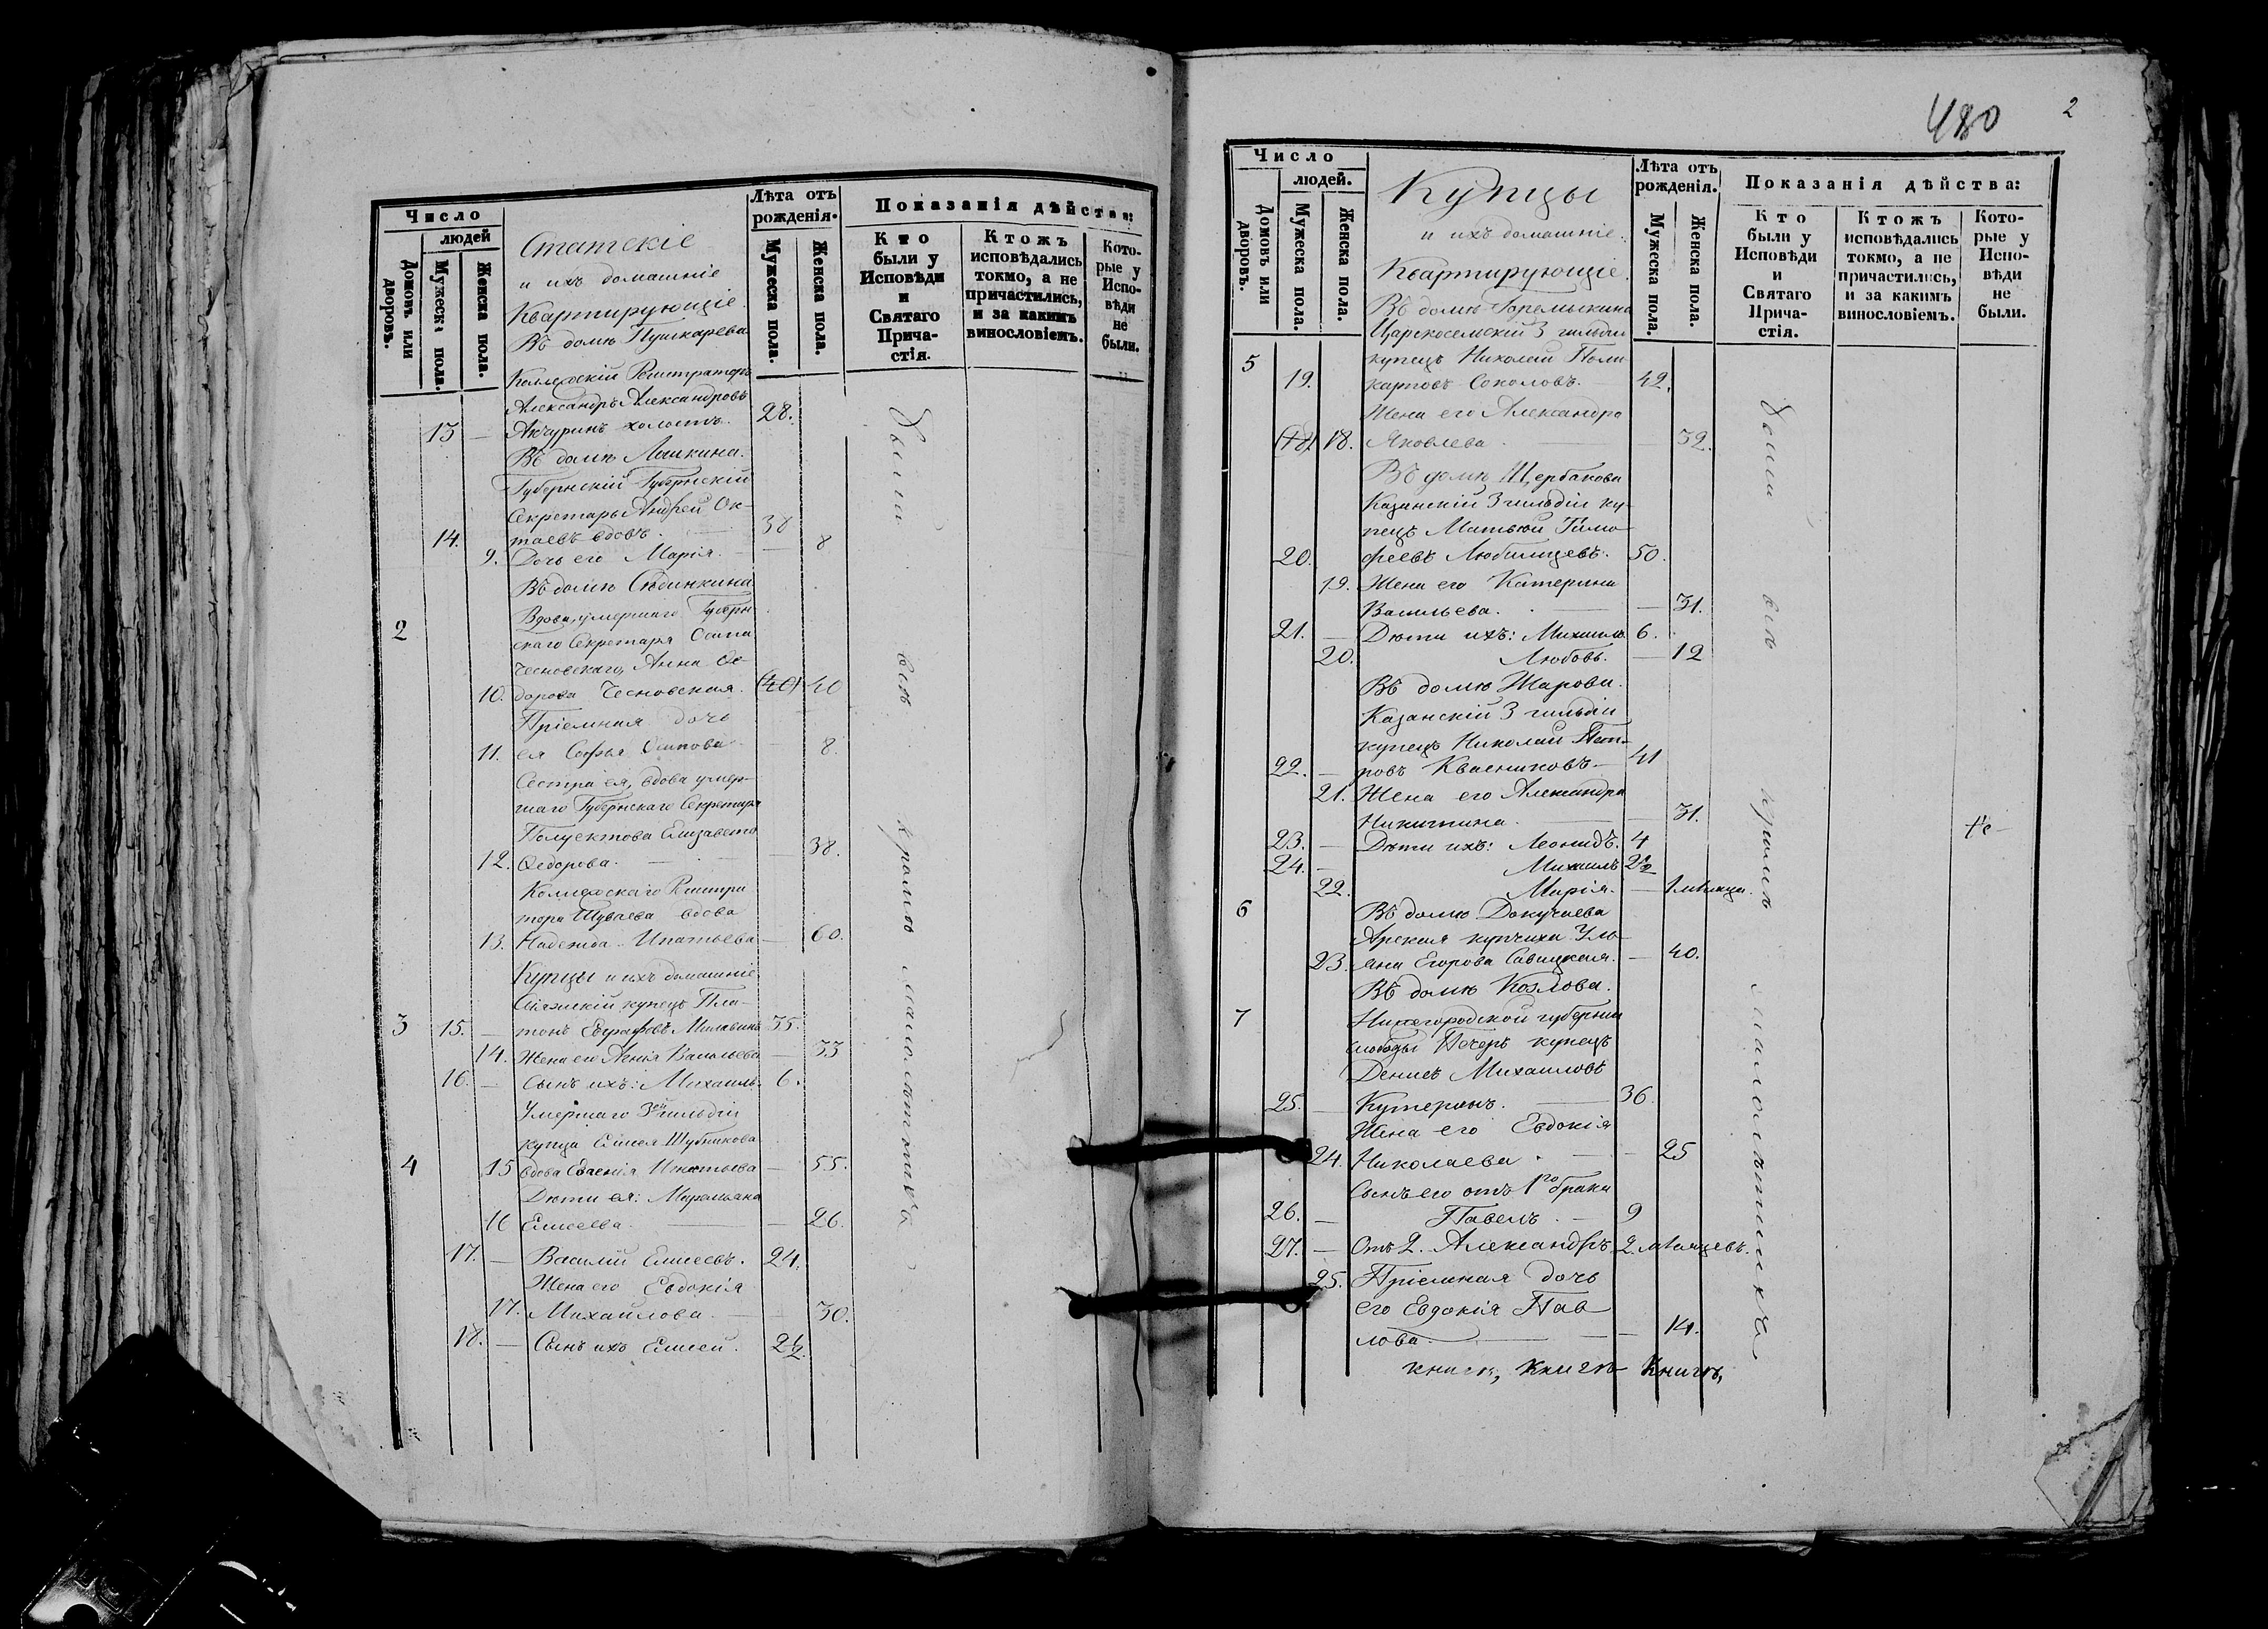 Число
людей
Домовъ или дворовъ.
Мужеска пола.
Женска пола.
Статскіе
и ихъ домашніе
Квартирующіе.
Въ домѣ Пушкарева
Лѣта отъ рожденія.
Мужеска пола.
Женска пола.
Показанія дѣйства:
Кто были у Исповѣди и Святаго Прича-стія.
Ктожъ исповѣдались токмо, а не причастились, и за какимъ винословіемъ.
Кото-рые у Испо-вѣди не были.
Коллежскій Регистраторъ
Александръ Александровъ
13 — Акчуринъ холостъ. 28.
Въ домѣ Лашкина.
Губернскій Губернскій
Секретарь Андрей Ок-
14. таевъ вдовъ. — 38
9. Дочь его Марія. — 8
Въ домѣ Сѣдинкина
Вдова умершаго Губерн-
2 скаго Секретаря Осипа
Чесновскаго, Анна Ѳе-
10. дорова Чесновская. (40) 40
Пріемная дочь
11. ея Софья Осипова — 8.
Сестра ея, вдова умер-
шаго Губернскаго Секретаря
Полуектова Елизавета
12. Ѳедорова. — 38.
Коллежскаго Регистра
тора Шуваева вдова
13. Надежда Ипатьева — 60.
Купцы и ихъ домашніе
купецъ Пла-
3 15. — тонъ Евграфовъ Милавинъ 35.
14. Жена его Васильева 33
16. — Сынъ ихъ: Михаилъ. 6.
Умершаго 3ей гильдіи
купца Елисея Шубникова
4 15 вдова Ипатьева — 55.
Дѣти ея: Маремьяна
16 Елисеева. — 26.
17. — Василій Елисеевъ. 24.
Жена его Евдокія
17. Михайлова. — 30.
18. — Сынъ ихъ Елисей. 2½.
были всѣ кромѣ малолѣтнихъ
480
2
Число
людей.
Домовъ или дворовъ.
Мужеска пола.
Женска пола.
Купцы
и ихъ домашніе.
Квартирующіе.
Въ домѣ Горемыкина
Царскосельскій 3 гильдіи
Лѣта отъ рожденія.
Мужеска пола.
Женска пола.
Показанія дѣйства:
Кто были у Исповѣди и Святаго Прича-стія.
Ктожъ исповѣдались токмо, а не причастились, и за какимъ винословіемъ.
Кото-рые у Испо-вѣди не были.
5 купецъ Николай Поли
19. карповъ Соколовъ. — 42.
Жена его Александра
(18) 18. Яковлева. — 32.
Въ домѣ Щербакова
Казанскій 3 гильдіи ку-
пецъ Матвѣй Тимо
20. феевъ Любимцевъ. 50.
19. Жена его Катерина
Васильева. — 31.
21. — Дѣти ихъ: Михаилъ 6.
20. Любовь. — 12
Въ домѣ Жарова.
Казанскій 3 гильдіи
купецъ Николай Пет-
22. — ровъ Квасниковъ — 41
21. Жена его Александра
Никитина. — 31.
23. — Дѣти ихъ: Леонидъ. 4
24. — Михаилъ 2½
22. Марія. — 1 мѣсяца.
6 Въ домѣ Докучаева
Арская купчиха Уль-
23. яна Егорова Савицкая. — 40.
Въ домѣ Козлова.
7 Нижегородской губерніи
слободы Печеръ купецъ
Денисъ Михаиловъ
25. — Кутеринъ. — 36.
Жена его Евдокія
24. Николаева. — 25
Сынъ его отъ 1го брака
26. — Павелъ. — 9
27. — Отъ 2. Александръ 2 мѣсяцевъ.
25. Пріемная дочь
его Евдокія Пав
лова. — 14.
были всѣ кромѣ малолѣтнихъ